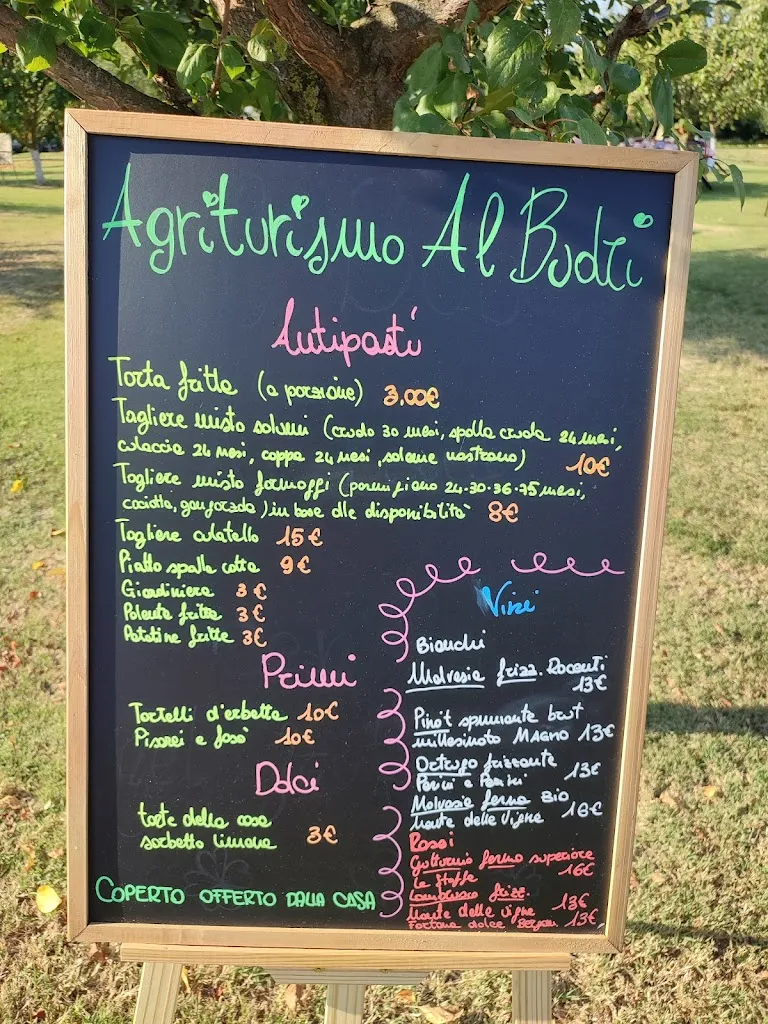 Agriturismo Al Budri
Antipasti
Torta fritta (a porzione) 3,00€
Tagliere misto salumi (crudo 30 mesi, spalla cruda 24 mesi,
culaccia 24 mesi, coppa 24 mesi, salame nostrano) 10€
Tagliere misto formaggi (parmigiano 24-30-36-75 mesi,
caciotta, gorgonzola) in base alle disponibilità 8€
Tagliere culatello 15€
Piatto spalla cotta 9€
Giardiniera 3€
Polenta fritta 3€
Patatine fritte 3€
Primi
Tortelli d'erbetta 10€
Pisarei e fasò 10€
Dolci
torte della casa
sorbetto limone 3€
COPERTO OFFERTO DALLA CASA
Vini
Bianchi
Malvasia frizz. Rocenti
13€
Pinot spumante brut
millesimato MAGNO 13€
Ortrugo frizzante
13€
Malvasia ferma BIO
Monte delle Vigne 16€
Rossi
Gutturnio fermo superiore
La Staffa 16€
Lambrusco frizz.
Monte delle Vigne 13€
Fortana dolce 13€